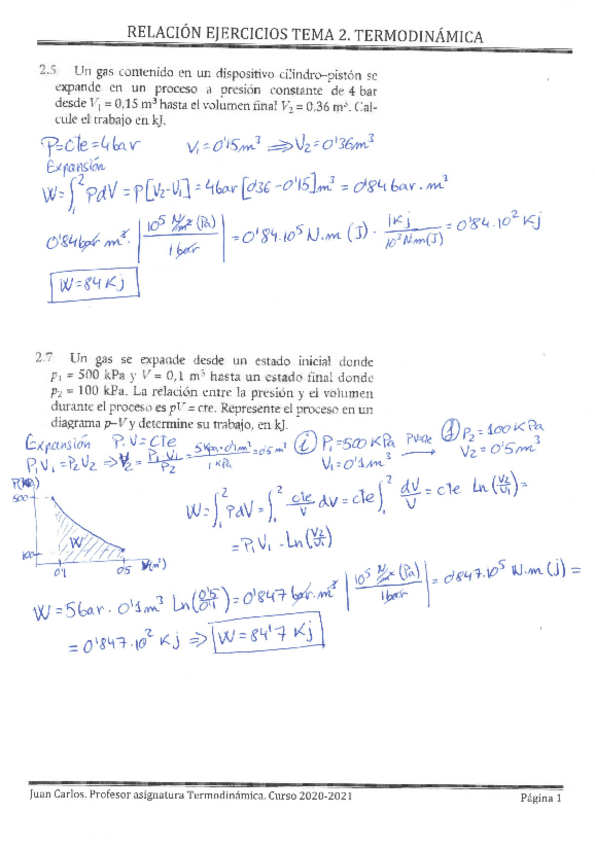 RELACIÓN EJERCICIOS TEMA 2. TERMODINÁMICA
2.5 Un gas contenido en un dispositivo cilindro-pistón se
expande en un proceso a presión constante de 4 bar
desde V₁ = 0,15 m³ hasta el volumen final V₂ = 0,36 m³. Cal-
cule el trabajo en kJ.
P=Cte=4bar V₁=0'15m³ ⇒ V₂=0'36m³
Expansión
W=∫₁² PdV = P[V₂-V₁] = 4bar [0'36-0'15]m³ = 0'84 bar·m³
0'84 bar m³ · | 10⁵ N/m² (Pa) / 1 bar | = 0'84·10⁵ N·m (J) · 1Kj / 10³ N·m(J) = 0'84·10² Kj
W=84 Kj
2.7 Un gas se expande desde un estado inicial donde
p₁ = 500 kPa y V = 0,1 m³ hasta un estado final donde
p₂ = 100 kPa. La relación entre la presión y el volumen
durante el proceso es pV = cte. Represente el proceso en un
diagrama p–V y determine su trabajo, en kJ.
Expansión P·V=Cte ① P₁=500 KPa PV=cte ② P₂=100 KPa
P₁V₁=P₂V₂ ⇒ V₂= P₁V₁/P₂ = 0'5 m³ V₁=0'1m³ V₂=0'5m³
500
W
100
0'1 0'5 V(m³)
W=∫₁² PdV = ∫₁² cte/V dV = cte ∫₁² dV/V = cte Ln(V₂/V₁) =
= P₁V₁ · Ln(V₂/V₁)
W= 5bar · 0'1m³ Ln(0'5/0'1) = 0'847 bar·m³ | 10⁵ N/m² (Pa) / 1bar | = 0'847·10⁵ N·m (J) =
= 0'847·10² Kj ⇒ W=84'7 Kj
Juan Carlos. Profesor asignatura Termodinámica. Curso 2020-2021
Página 1